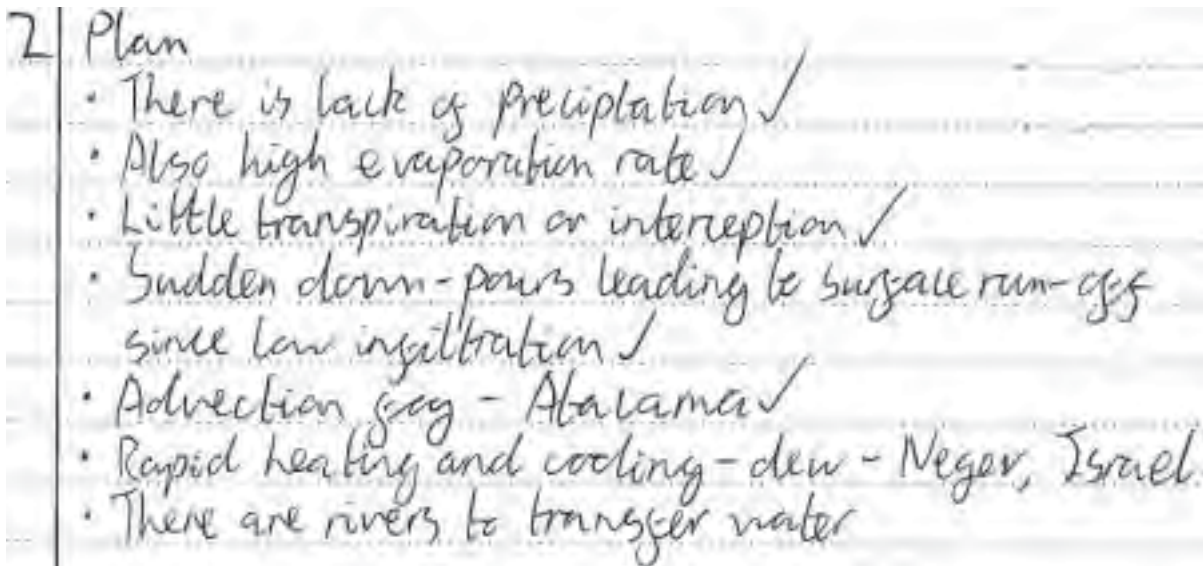 2 Plan
· There is lack of preciptation ✓
· Also high evaporation rate ✓
· Little transpiration or interception ✓
· Sudden down-pours leading to surface run-off
since low infiltration ✓
· Advection fog - Atacama ✓
· Rapid heating and cooling - dew - Negev, Israel.
· There are rivers to transfer water